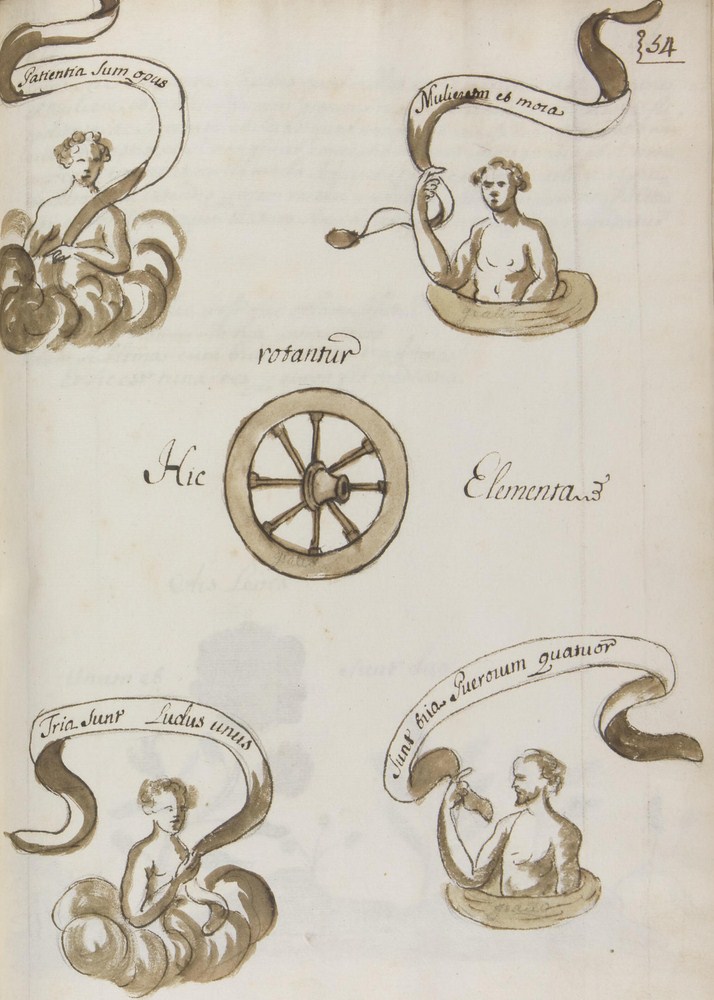 54
Patientia Sum opus
Mulierum et mora
giallo
rotantur
Hic
Elementa
giallo
Tria Sunt Ludus unus
Sunt tria Puerorum Quatuor
giallo